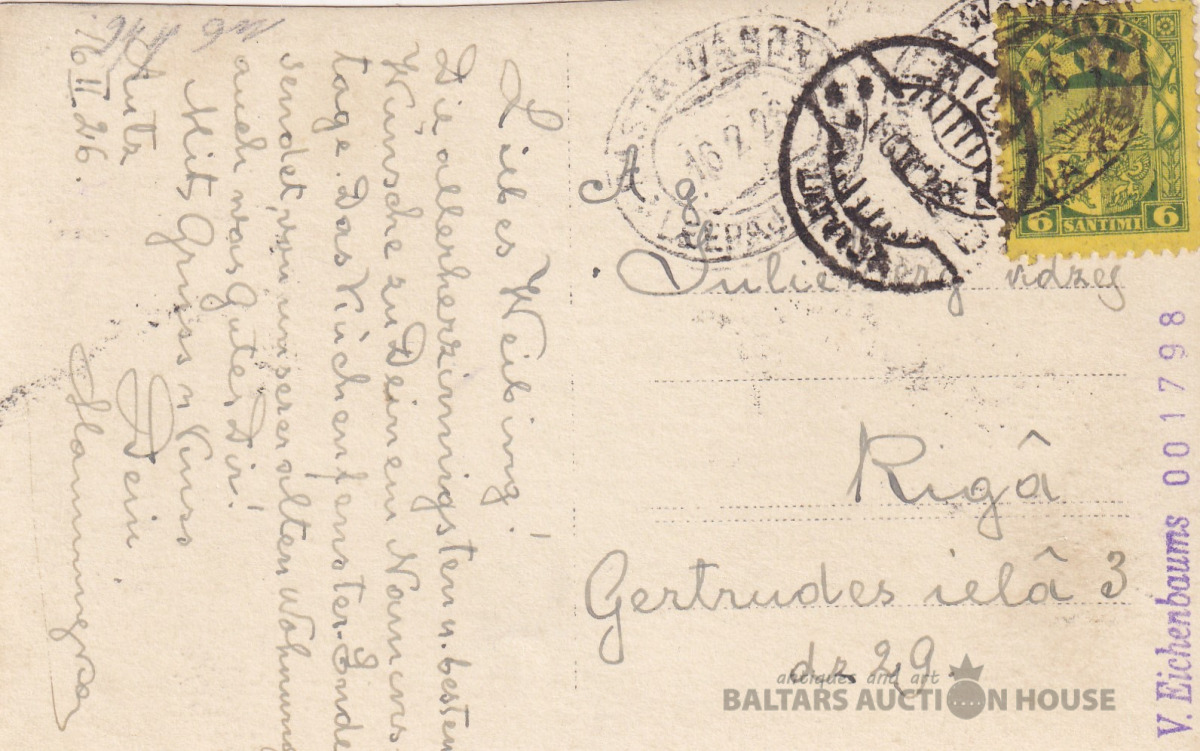 Liebes Weibing!
Die allerherzinnigsten u. besten
Wünsche zu Deinem Namens-
tage. Das Küchenfenster-Ende
sendet, von unserer alten Wohnung
auch was Gutes Dir!
Mit Gruss u Kuss
Dein
16 II. 26.
A. g.
Julie
Rigâ
Gertrudes ielâ 3
dz 29.
PASTA VAGON
16.2.26
LEEPAJA
6 SANTIMI 6
V. Eichenbaums 001798
antiques and art
BALTARS AUCTION HOUSE